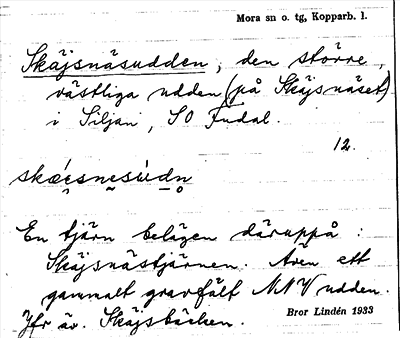 Mora sn o. tg, Kopparb. l.
Skäjsnäsudden, den större,
västliga udden (på Skäjsnäset)
i Siljan, SO Fudal.
12.
En tjärn belägen däruppå:
Skäjsnästjärnen. Även ett
gammalt gravfält NNV udden.
Jfr äv. Skäjsbäcken.
Bror Lindén 1933